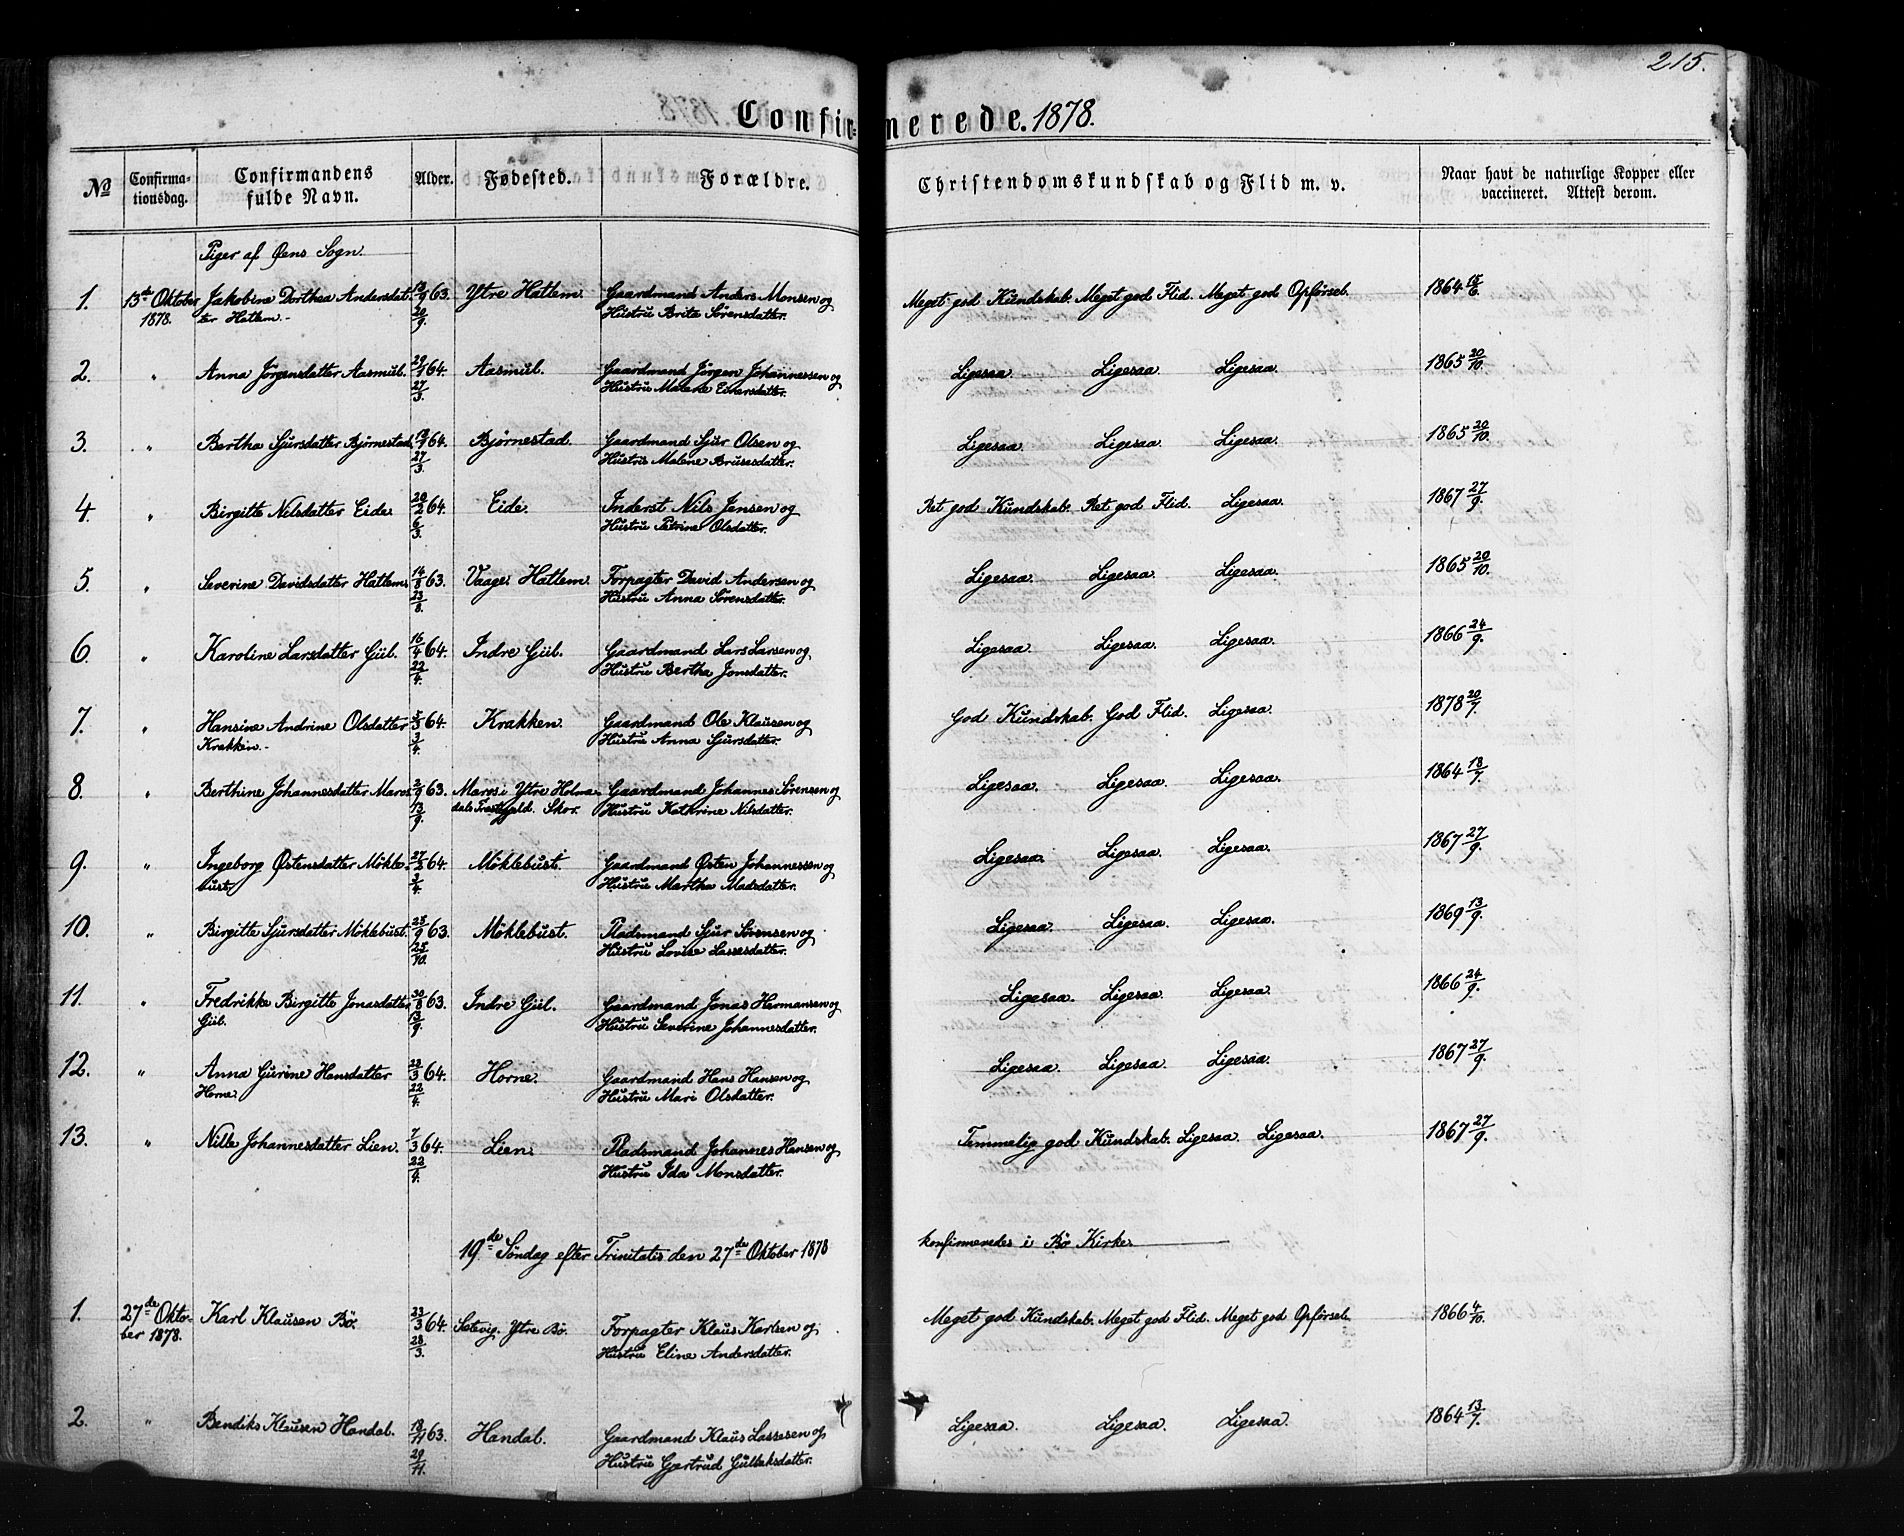 215.
Confirmerede. 1878.
No
Confirma-
tionsdag.
Confirmandens
fulde Navn.
Alder.
Fødested.
Forældre.
Christendomskundskab og Flid m. v.
Naar havt de naturlige Kopper eller
vaccineret. Attest derom.
Piger af Øens Sogn.
1. 13de Oktober Jakobine Dorthea Andersdat- 13/9 63. Ytre Hatlem. Gaardmand Anders Monsen og Meget god Kundskab. Meget god Flid. Meget god Opførsel. 1864 15/6.
1878. ter Hatlem.- 20/9. Hustru Brite Sørensdatter.
2. " Anna Jørgensdatter Aasmul. 29/1 64. Aasmul. Gaardmand Jørgen Johannessen og Ligesaa. Ligesaa. Ligesaa. 1865 20/10.
27/3. Hustru Malene Einersdatter.
3. " Bertha Sjursdatter Bjørnestad. 64. Bjørnestad. Gaardmand Sjur Olsen og Ligesaa. Ligesaa. Ligesaa. 1865 20/10.
27/3. Hustru Malene Brusesdatter.
4. " Birgitte Nilsdatter Eide. 20/2 64. Eide. Inderst Nils Jensen og Ret god Kundskab. Ret god Flid. Ligesaa. 1867 27/9.
6/3. Hustru Petrine Olsdatter.
5. " Severine Davidsdatter Hatlem. 14/8 63. Vaage Hatlem. Forpagter David Andersen og Ligesaa. Ligesaa. Ligesaa. 1865 20/10.
23/8. Hustru Anna Sørensdatter.
6. " Karoline Larsdatter Giil. 16/4 64. Indre Giil. Gaardmand Lars Larsen og Ligesaa. Ligesaa. Ligesaa. 1866 24/9.
22/4. Hustru Bertha Jonsdatter.
7. " Hansine Andrine Olsdatter 5/3 64. Krakken. Gaardmand Ole Klausen og God Kundskab. God Flid. Ligesaa. 1878 20/7.
Krakken.- 3/4. Hustru Anna Sjursdatter.
8. " Berthine Johannesdatter Mares. 2/9 63. Mares i Ytre Holme- Gaardmand Johannes Sørensen og Ligesaa. Ligesaa. Ligesaa. 1864 13/7.
13/9. dals Præstegjeld. Skor. Hustru Kathrine Nilsdatter.
9. " Ingeborg Østensdatter Møkle- 27/2 64. Møklebust. Gaardmand Østen Johannessen og Ligesaa. Ligesaa. Ligesaa. 1867 27/9.
bust. 3/4. Hustru Martha Madsdatter.
10. " Birgitte Sjursdatter Møklebust. 25/9 63. Møklebust. Pladsmand Sjur Sørensen og Ligesaa. Ligesaa. Ligesaa. 1869 13/9.
25/10. Hustru Lovise Lassesdatter.
11. " Fredrikke Birgitte Jonasdatter 30/8 63. Indre Giil. Gaardmand Jonas Hermansen og Ligesaa. Ligesaa. Ligesaa. 1866 24/9.
Giil. 13/9. Hustru Severine Johannesdatter.
12. " Anna Gurine Hansdatter 23/3 64. Horne. Gaardmand Hans Hansen og Ligesaa. Ligesaa. Ligesaa. 1867 27/9.
Horne. 22/4. Hustru Mari Olsdatter.
13. " Nille Johannesdatter Lien. 7/3 64. Lien. Pladsmand Johannes Hansen og Temmelig god Kundskab. Ligesaa. Ligesaa. 1867 27/9.
22/4. Hustru Ida Monsdatter.
19de Søndag efter Trinitatis den 27de Oktober 1878 konfirmeredes i Bø Kirke.
1. 27de Okto- Karl Klausen Bø. 23/3 64. Ytre Bø. Forpagter Klaus Karlsen og Meget god Kundskab. Meget god Flid. Meget god Opførsel. 1866 4/10.
ber 1878. 28/3. Hustru Eline Andersdatter.
2. " Bendiks Klausen Handal. 18/11 63. Handal. Gaardmand Klaus Lassesen og Ligesaa. Ligesaa. Ligesaa. 1864 13/7.
29/11. Hustru Gjertrud Gulleiksdatter.